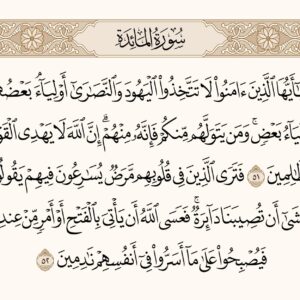 سُورَةُ المَائِدَة
يَٰٓأَيُّهَا ٱلَّذِينَ ءَامَنُوا۟ لَا تَتَّخِذُوا۟ ٱلْيَهُودَ وَٱلنَّصَٰرَىٰٓ أَوْلِيَآءَ ۘ بَعْضُه
يَآءُ بَعْضٍ ۚ وَمَن يَتَوَلَّهُم مِّنكُمْ فَإِنَّهُۥ مِنْهُمْ ۗ إِنَّ ٱللَّهَ لَا يَهْدِى ٱلْقَوْ
ظَّٰلِمِينَ ٥١ فَتَرَى ٱلَّذِينَ فِى قُلُوبِهِم مَّرَضٌ يُسَٰرِعُونَ فِيهِمْ يَقُولُو
شَىٰٓ أَن تُصِيبَنَا دَآئِرَةٌ ۚ فَعَسَى ٱللَّهُ أَن يَأْتِىَ بِٱلْفَتْحِ أَوْ أَمْرٍ مِّنْ عِند
فَيُصْبِحُوا۟ عَلَىٰ مَآ أَسَرُّوا۟ فِىٓ أَنفُسِهِمْ نَٰدِمِينَ ٥٢